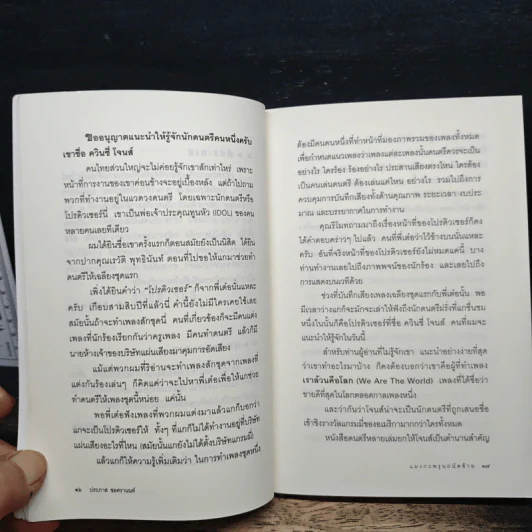 ขออนุญาตแนะนำให้รู้จักนักดนตรีคนหนึ่งครับ
เขาชื่อ ควินซี่ โจนส์
คนไทยส่วนใหญ่จะไม่ค่อยรู้จักเขาสักเท่าไหร่ เพราะ
หน้าที่การงานของเขาค่อนข้างจะอยู่เบื้องหลัง แต่ถ้าไปถาม
พวกที่ทำงานอยู่ในแวดวงดนตรี โดยเฉพาะนักดนตรีหรือ
โปรดิวเซอร์นี่ เขาเป็นพ่อเจ้าประคุณทูนหัว (IDOL) ของคน
หลายคนเลยทีเดียว
ผมได้ยินชื่อเขาครั้งแรกก็ตอนสมัยยังเป็นนิสิต ได้ยิน
จากปากคุณเรวัติ พุทธินันทน์ ตอนที่ไปขอให้แกมาช่วยทำ
ดนตรีให้เฉลียงชุดแรก
เพิ่งได้ยินคำว่า "โปรดิวเซอร์" ก็จากพี่เต๋อนั่นแหละ
ครับ เกือบสามสิบปีที่แล้วนี่ คำนี้ยังไม่มีใครเคยใช้เลย
สมัยนั้นถ้าจะทำเพลงสักชุดนี่ คนที่เกี่ยวข้องก็จะมีคนแต่ง
เพลงที่นักร้องเรียกกันว่าครูเพลง มีคนทำดนตรี แล้วก็มี
นายห้างเจ้าของบริษัทแผ่นเสียงมาคุมการอัดเสียง
แม้แต่พวกผมที่ริอ่านจะทำเพลงสักชุดจากเพลงที่
แต่งกันร้องเล่นๆ ก็คิดแค่ว่าจะไปหาพี่เต๋อเพื่อให้แกช่วย
ทำดนตรีให้เพลงชุดนี้หน่อย แค่นั้น
พอพี่เต๋อฟังเพลงที่พวกผมแต่งมาแล้วแกก็บอกว่า
แกจะเป็นโปรดิวเซอร์ให้ ทั้งๆ ที่แกก็ไม่ได้ทำงานอยู่ที่บริษัท
แผ่นเสียงอะไรที่ไหน (สมัยนั้นแกยังไม่ได้ตั้งบริษัทแกรมมี่)
แล้วแกก็ให้ความรู้เพิ่มเติมว่า ในการทำเพลงชุดหนึ่ง
๑๖ ประภาส ชลศรานนท์
ต้องมีคนคนหนึ่งที่ทำหน้าที่มองภาพรวมของเพลงทั้งหมด
เพื่อกำหนดแนวเพลงว่าเพลงแต่ละเพลงนั้นดนตรีควรจะเป็น
อย่างไร ใครร้อง ร้องอย่างไร ประสานเสียงตรงไหน ใครต้อง
เป็นคนเล่นดนตรี ต้องเล่นแค่ไหน อย่างไร รวมไปถึงการ
ควบคุมการบันทึกเสียงทั้งด้านคุณภาพ ระยะเวลา งบประ-
มาณ และบรรยากาศในการทำงาน
คุณรี่ไหมถามมาถึงเรื่องหน้าที่ของโปรดิวเซอร์ก็คง
ได้คำตอบคร่าวๆ ไปแล้ว คนที่พี่เต๋อว่าไว้ข้างบนนั่นแหละ
ครับ อันที่จริงหน้าที่ของโปรดิวเซอร์ยังไม่หมดแค่นี้ บาง
ท่านทำงานเลยไปถึงภาพพจน์ของนักร้อง และเลยไปถึง
การแสดงบนเวทีด้วย
ช่วงที่บันทึกเสียงเพลงเฉลียงชุดแรกกับพี่เต๋อนั้น พอ
มีเวลาว่างแกก็จะมักจะเล่าให้ฟังถึงนักดนตรีฝรั่งที่แกชื่นชม
หนึ่งในนั้นก็คือโปรดิวเซอร์ที่ชื่อ ควินซี่ โจนส์ คนที่ผมจะ
แนะนำให้รู้จักในวันนี้
สำหรับท่านผู้อ่านที่ไม่รู้จักเขา แนะนำอย่างง่ายที่สุด
ว่าเขาทำอะไรมาบ้าง ก็คงต้องบอกว่าเขาคือผู้ที่ทำเพลง
เราล้วนคือโลก (We Are The World) เพลงที่ได้ชื่อว่า
ขายดีที่สุดในโลกตลอดกาลเพลงหนึ่ง
และว่ากันว่าโจนส์น่าจะเป็นนักดนตรีที่ถูกเสนอชื่อ
เข้าชิงรางวัลแกรมมี่ของอเมริกามากกว่าใครทั้งหมด
หนังสือดนตรีหลายเล่มยกให้โจนส์เป็นตำนานสำคัญ
แมงกะพรุนถนัดซ้าย ๑๗